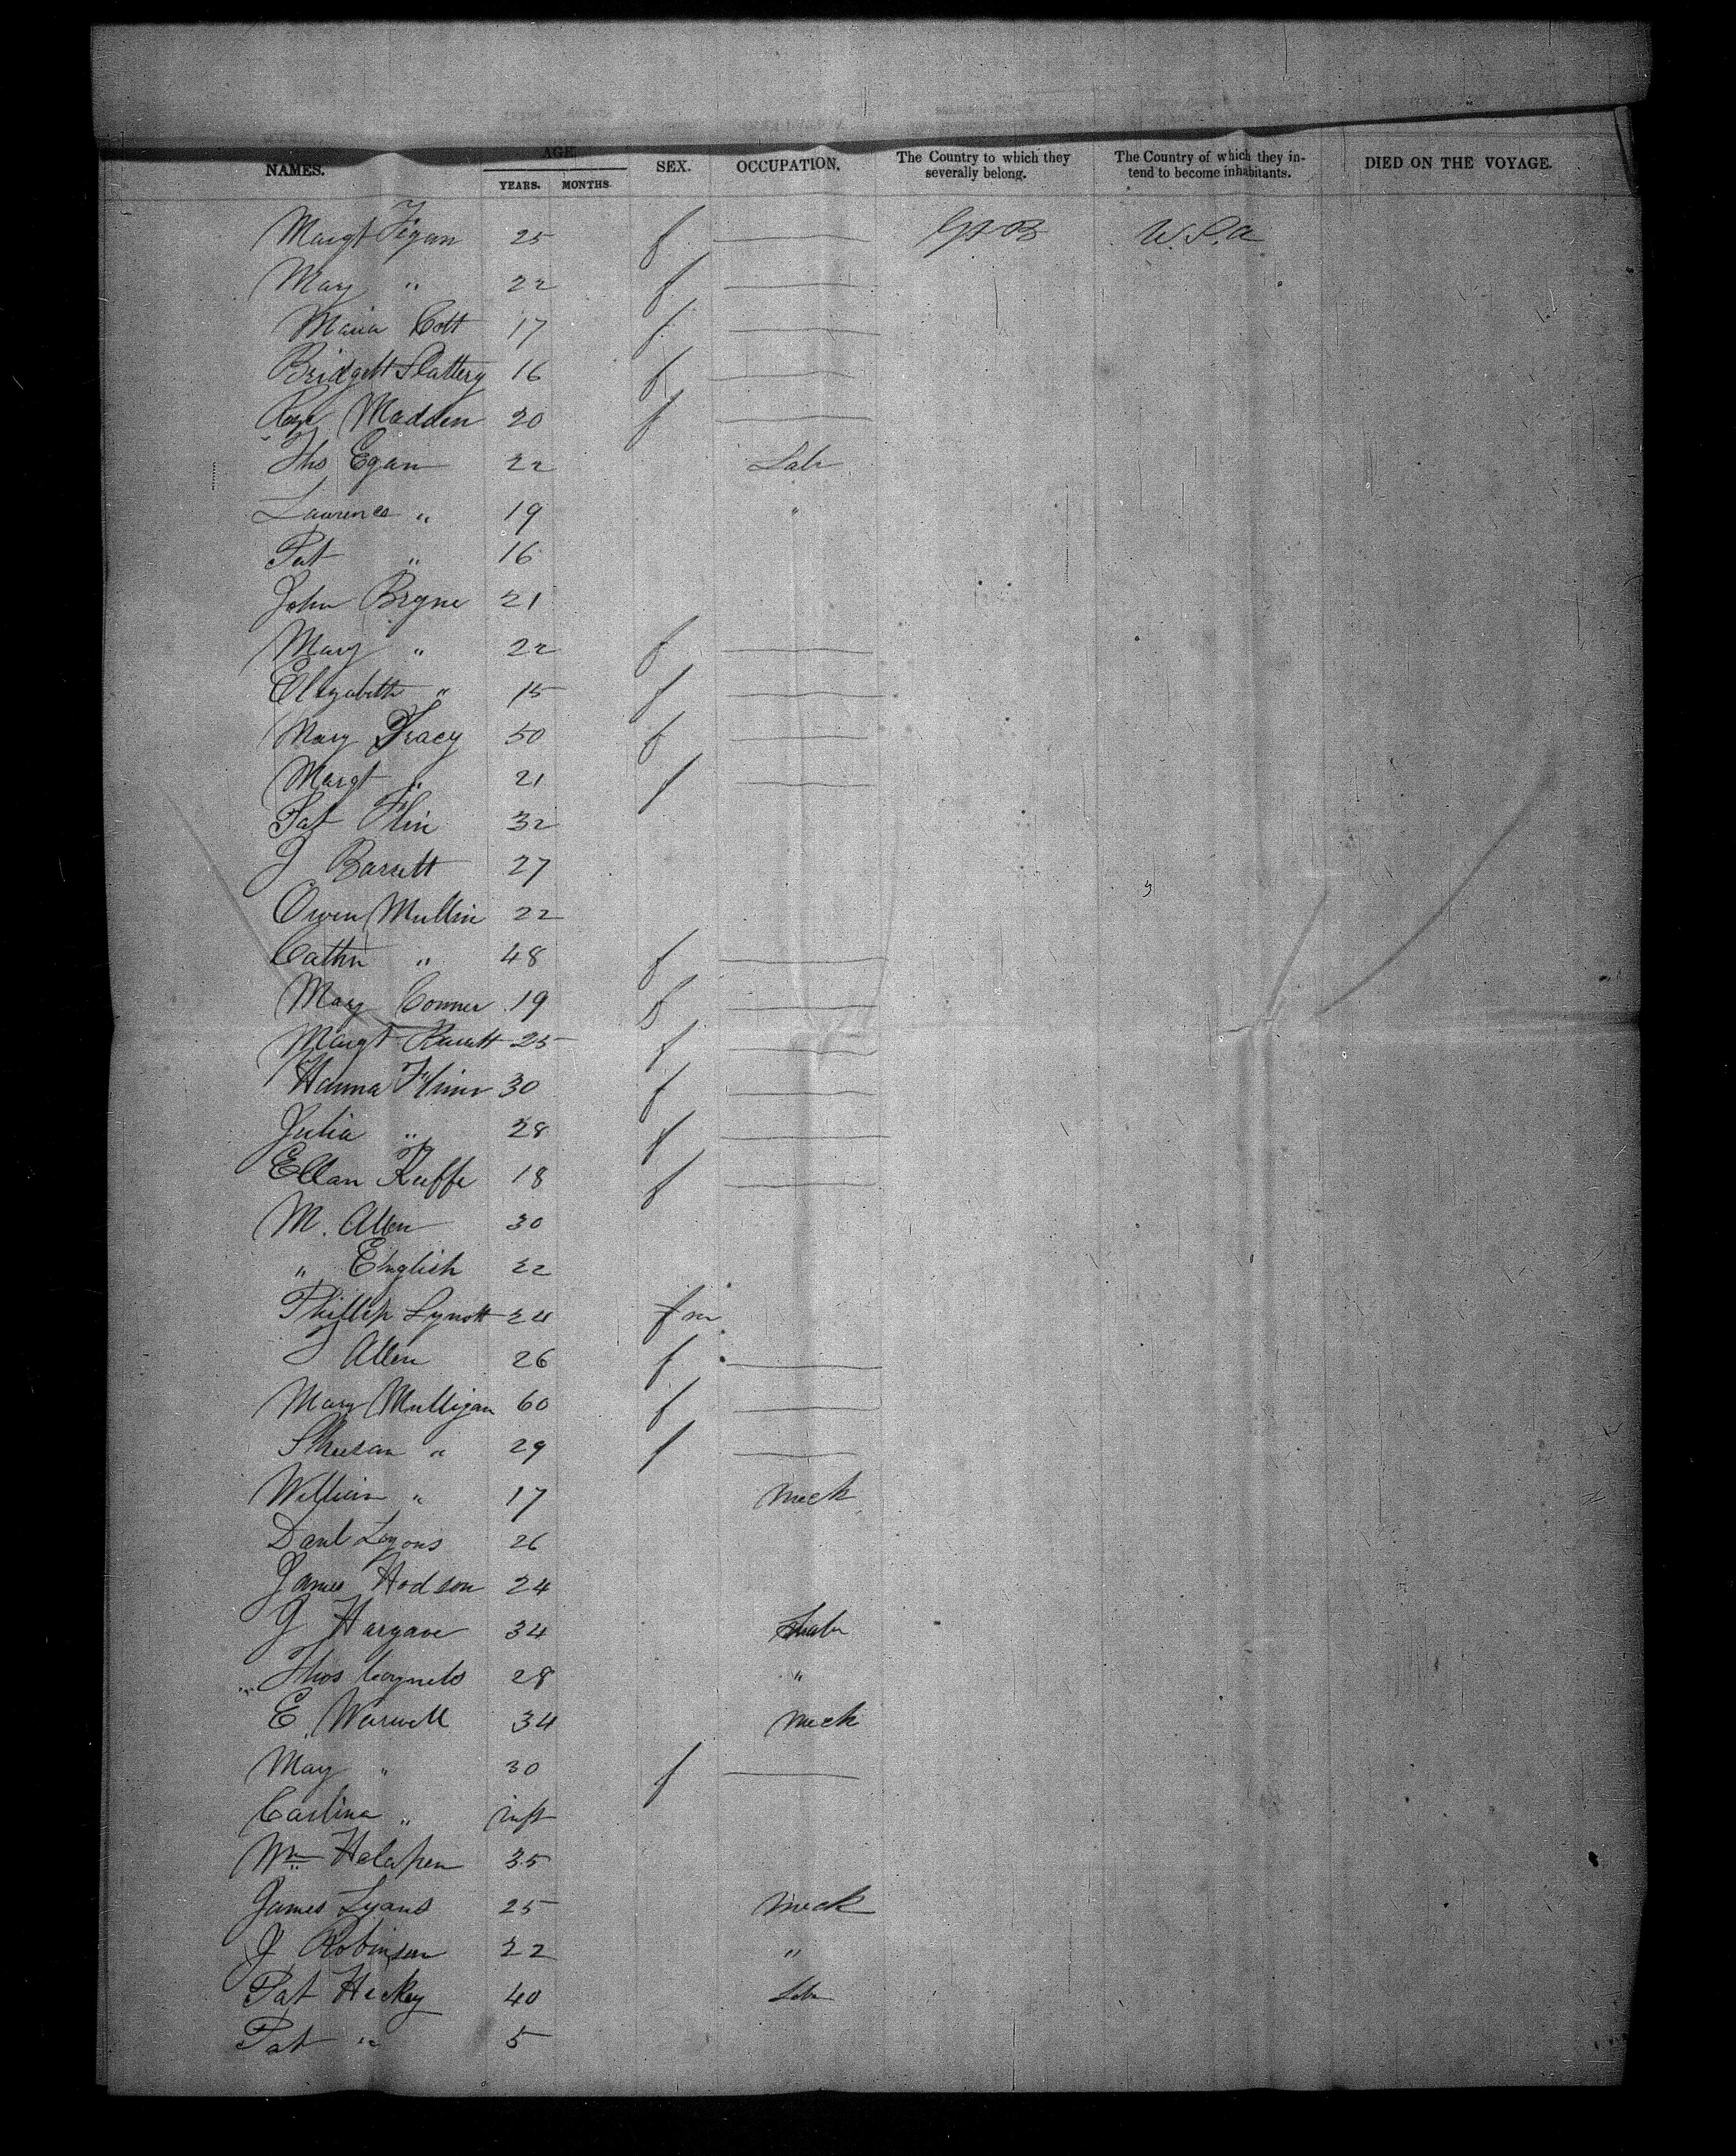 NAMES. AGE. YEARS. MONTHS. SEX. OCCUPATION. The Country to which they severally belong. The Country of which they intend to become inhabitants. DIED ON THE VOYAGE.
Margt Fegan 25 f — Gt B U.S.A
Mary " 22 f —
Maria Cott 17 f —
Bridgett Slattery 16 f —
Rose Madden 20 f —
Ths Egan 22 Labr
Laurence " 19 "
Pat " 16
John Brgne 21
Mary " 22 f —
Elizabeth " 15 f —
Mary Tracy 50 f —
Margt " 21 f —
Pat Flin 32
J Barrett 27
Owen Mullin 22
Cathn " 48 f —
Mary Conner 19 f —
Margt Barrett 25 f —
Hanna Flinn 30 f —
Julia " 28 f —
Ellan Keeffe 18 f —
M. Allen 30
" English 22
Phillip Lynott 24 f m
J Allen 26 f —
Mary Mulligan 60 f —
" 29 f —
William " 17 Meck
Danl Lyons 26
James Hodson 24
J Hargave 34
Thos 28 "
E. Warwell 34 Meck
May " 30 f —
Carlina " inft
Wm 35
James Lyans 25 Meck
J Robinson 22 "
Pat Hickey 40 Labr
Pat " 5